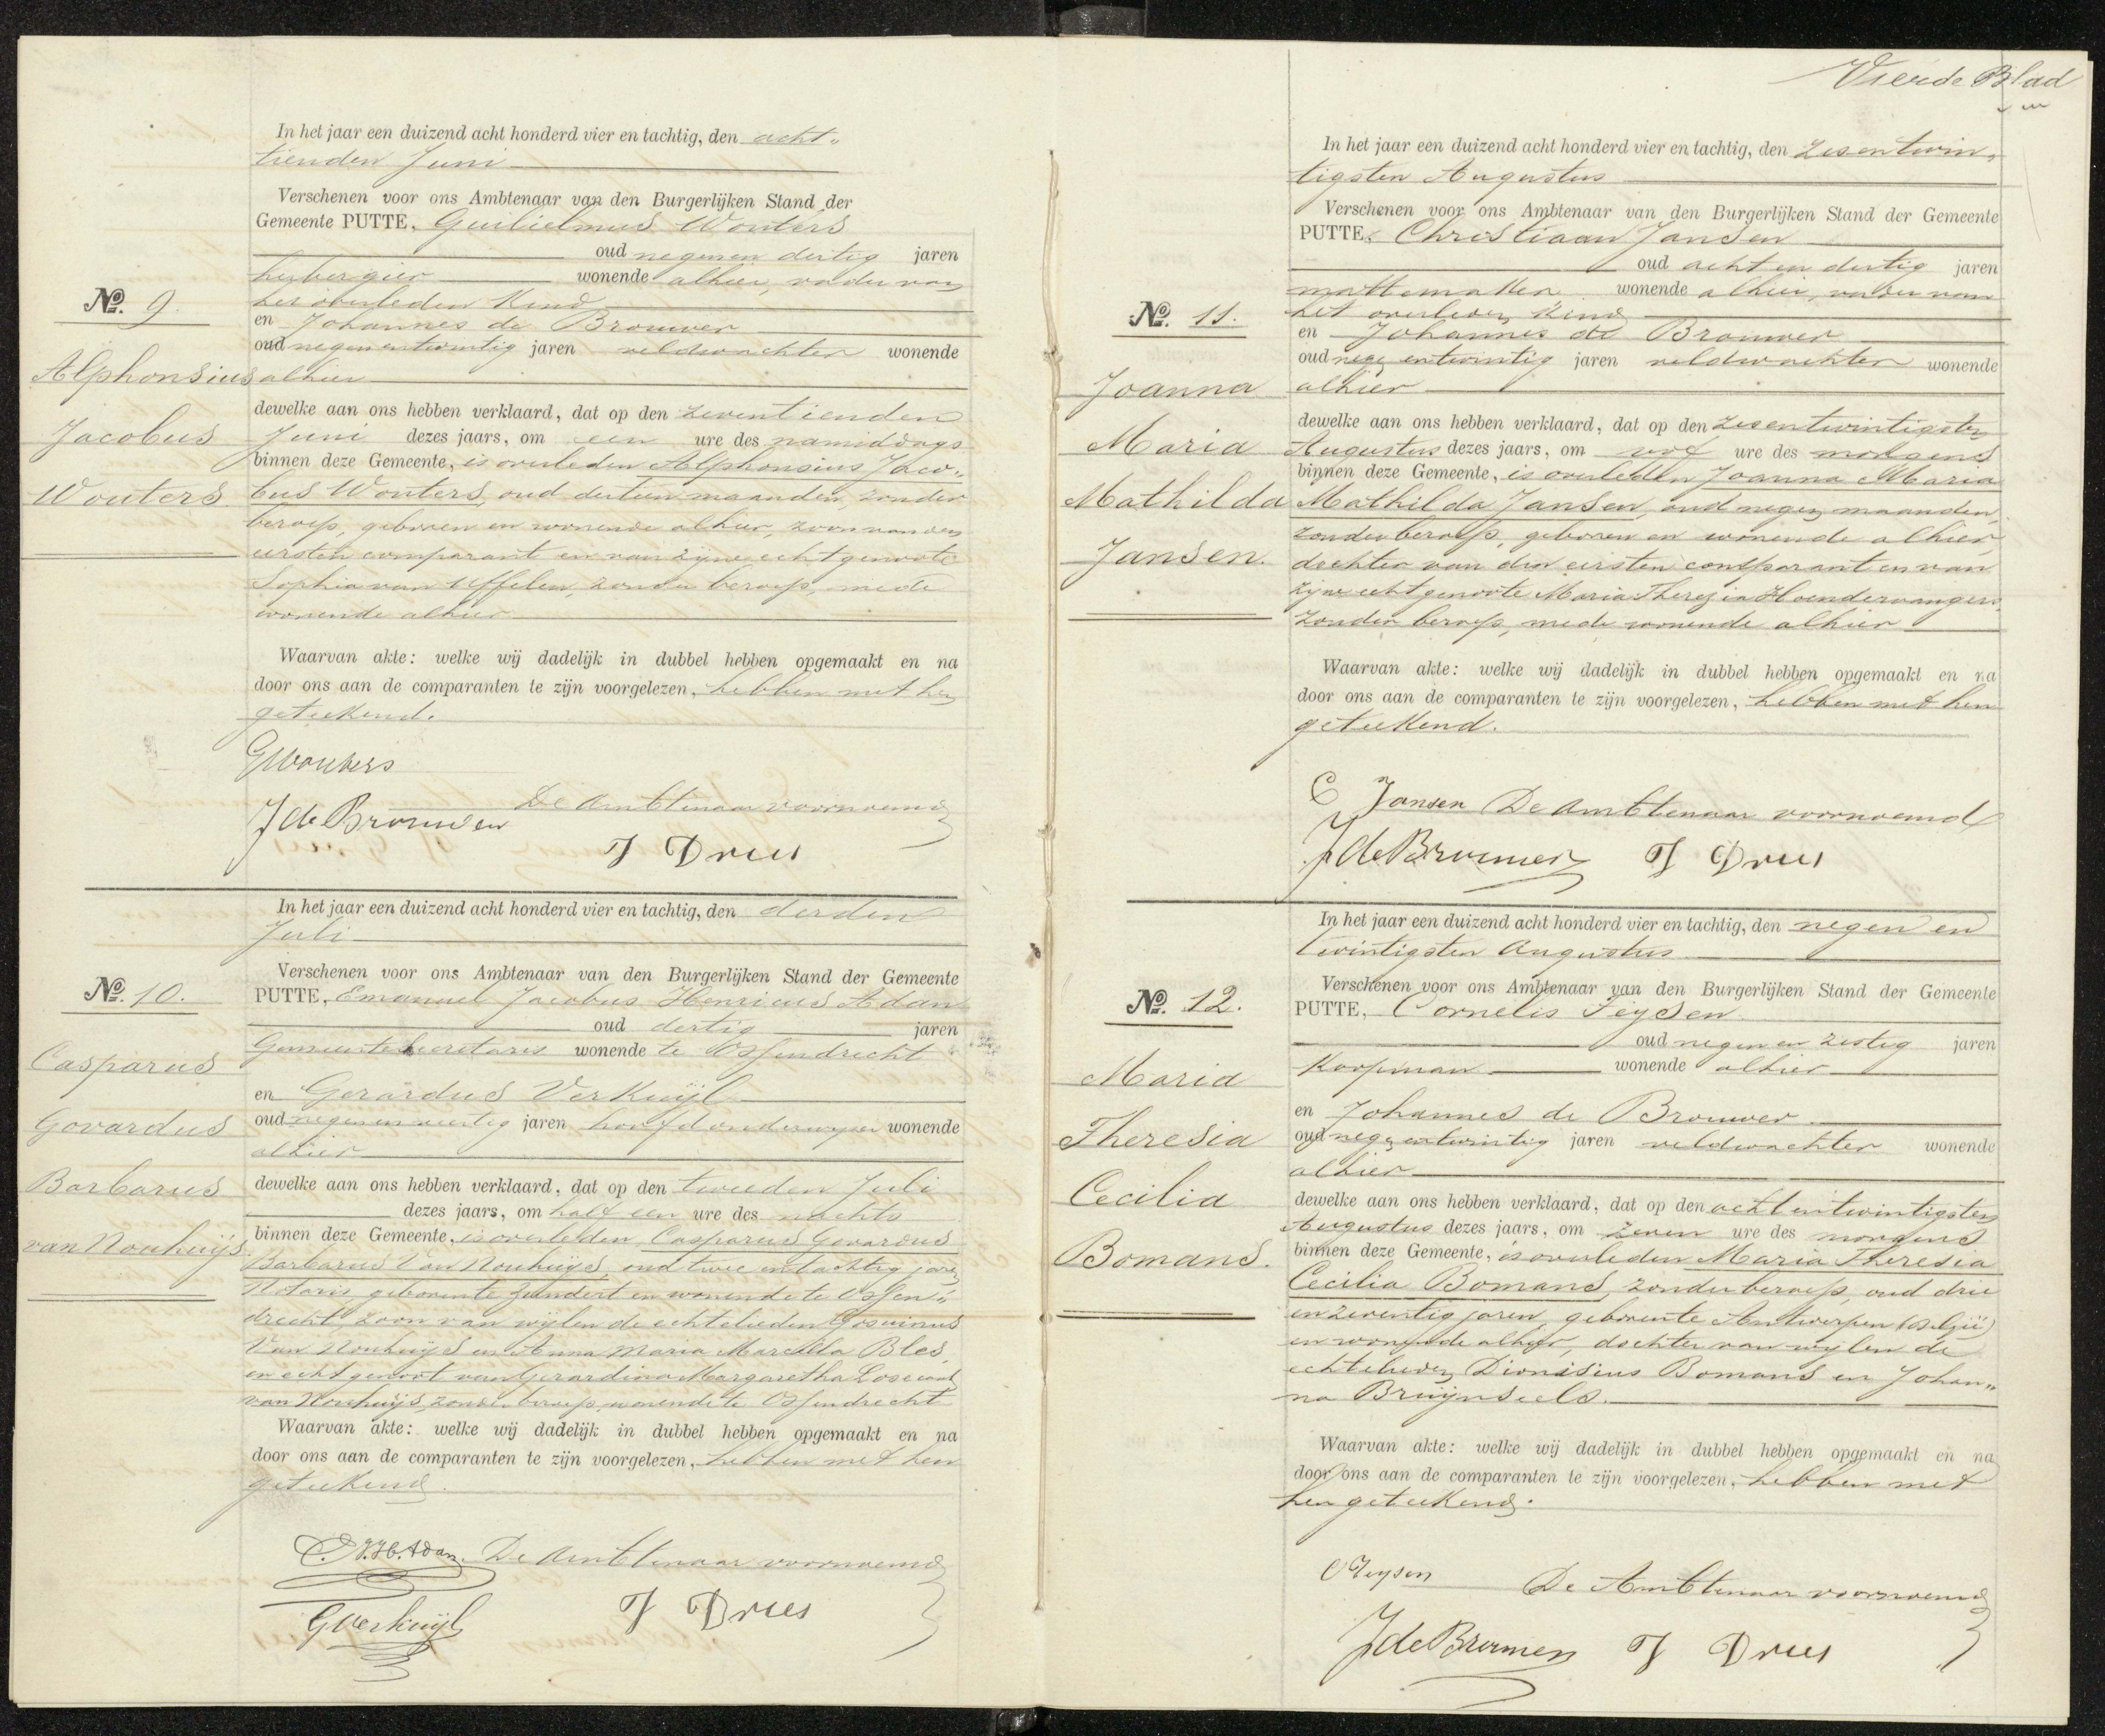 In het jaar een duizend acht honderd vier en tachtig, den acht"
tienden Juni
Verschenen voor ons Ambtenaar van den Burgerlijken Stand der
Gemeente PUTTE, Guilielmus Wouters
oud negen en dertig jaren
herbergier wonende alhier, vader van
het overleden kind
en Johannes de Brouwer
oud negen entwintig jaren veldwachter wonende
alhier
No. 9.
Alphonsius
Jacobus
Wouters
dewelke aan ons hebben verklaard, dat op den zeventienden
Juni dezes jaars, om een ure des namiddags
binnen deze Gemeente, is overleden Alphonsius Jaco"
bus Wouters, oud dertien maanden, zonder
beroep, geboren en wonende alhier, zoon van den
eersten comparant en van zijne echtgenoote
Sophia van Uffelen, zonder beroep, mede
wonende alhier
Waarvan akte: welke wij dadelijk in dubbel hebben opgemaakt en na
door ons aan de comparanten te zijn voorgelezen, hebben met hen
geteekend.
GWouters
De Ambtenaar voornoemd
J de Brouwer
J Dries
In het jaar een duizend acht honderd vier en tachtig, den derden
Juli
Verschenen voor ons Ambtenaar van den Burgerlijken Stand der Gemeente
PUTTE, Emanuel Jacobus Henricus Adan
oud dertig jaren
Gemeentesecretaris wonende te Ossendrecht
en Gerardus Verkuijl
oud negen en veertig jaren hoofdonderwijzer wonende
alhier
No. 10.
Casparus
Govardus
Barbarus
van Nouhuijs.
dewelke aan ons hebben verklaard, dat op den tweeden Juli
dezes jaars, om half een ure des nachts
binnen deze Gemeente, is overleden Casparus Govardus
Barbarus Van Nouhuijs, oud twee en tachtig jaren
Notaris, geboren te Zundert en wonende te Ossen"
drecht, zoon van wijlen de echtelieden Goswinus
Van Nouhuijs en Anna Maria Marcella Bles,
en echtgenoot van Gerardina Margaretha
van Nouhuijs, zonder beroep, wonende te Ossendrecht
Waarvan akte: welke wij dadelijk in dubbel hebben opgemaakt en na
door ons aan de comparanten te zijn voorgelezen, hebben met hen
geteekend.
E.J.H. Adan. De Ambtenaar voornoemd
GVerkuijl
J Dries
Vierde Blad
In het jaar een duizend acht honderd vier en tachtig, den zesentwin"
tigsten Augustus
Verschenen voor ons Ambtenaar van den Burgerlijken Stand der Gemeente
PUTTE, Christiaan Jansen
oud acht en dertig jaren
mattemaker wonende alhier, vader van
het overleden kind
en Johannes de Brouwer
oud negen entwintig jaren veldwachter wonende
alhier
No. 11.
Joanna
Maria
Mathilda
Jansen.
dewelke aan ons hebben verklaard, dat op den zesentwintigsten
Augustus dezes jaars, om ure des morgens
binnen deze Gemeente, is overleden Joanna Maria
Mathilda Jansen, oud negen maanden,
zonder beroep, geboren en wonende alhier,
dochter van den eersten comparant en van
zijne echtgenoote Maria Therezia Hoendervangers,
zonder beroep, mede wonende alhier
Waarvan akte: welke wij dadelijk in dubbel hebben opgemaakt en na
door ons aan de comparanten te zijn voorgelezen, hebben met hen
geteekend.
C Jansen De Ambtenaar voornoemd
J de Brouwer J Dries
In het jaar een duizend acht honderd vier en tachtig, den negen en
twintigsten Augustus
Verschenen voor ons Ambtenaar van den Burgerlijken Stand der Gemeente
PUTTE, Cornelis Feijsen
oud negen en zestig jaren
Koopman wonende alhier
en Johannes de Brouwer
oud negen entwintig jaren veldwachter wonende
alhier
No. 12.
Maria
Theresia
Cecilia
Bomans.
dewelke aan ons hebben verklaard, dat op den acht entwintigsten
Augustus dezes jaars, om zeven ure des morgens
binnen deze Gemeente, is overleden Maria Theresia
Cecilia Bomans, zonder beroep, oud drie
en zeventig jaren, geboren te Antwerpen (België)
en wonende alhier, dochter van wijlen de
echtelieden Dionisius Bomans en Johan"
na Bruijnseels.
Waarvan akte: welke wij dadelijk in dubbel hebben opgemaakt en na
door ons aan de comparanten te zijn voorgelezen, hebben met
hen geteekend.
C Feysen De Ambtenaar voornoemd
J de Brouwer J Dries